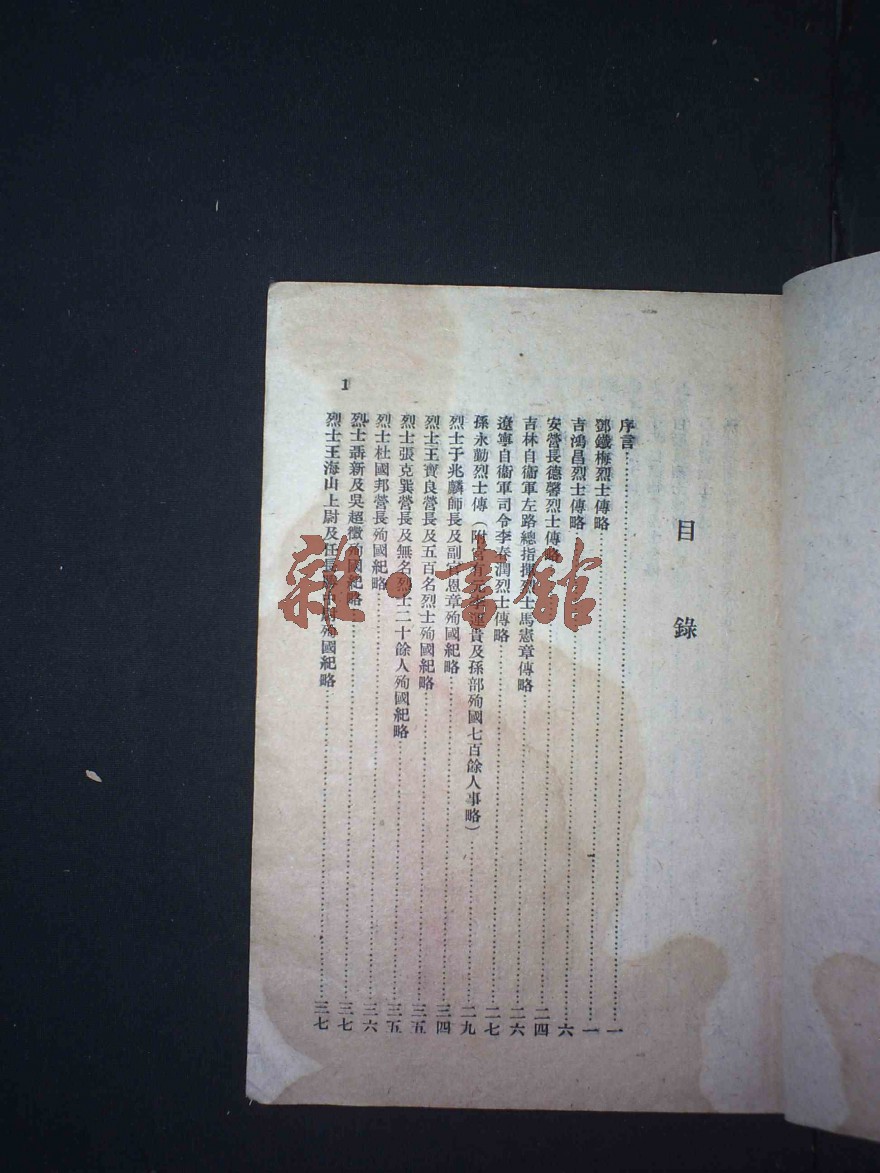 目錄
序言……一
鄧鐵梅烈士傳略……一
吉鴻昌烈士傳略……六
安營長德馨烈士傳略……二四
吉林自衞軍左路總指揮烈士馬憲章傳略……二六
遼寧自衞軍司令李春潤烈士傳略……二七
孫永勤烈士傳（附宮有元李連貴及孫部殉國七百餘人事略）……二九
烈士于兆麟師長及副官恩章殉國紀略……三四
烈士王寶良營長及五百名烈士殉國紀略……三五
烈士張克巽營長及無名烈士二十餘人殉國紀略……三五
烈士杜國邦營長殉國紀略……三六
烈士聶新及吳超徵殉國紀略……三七
烈士王海山上尉及任長 殉國紀略……三七
1
雜·書館